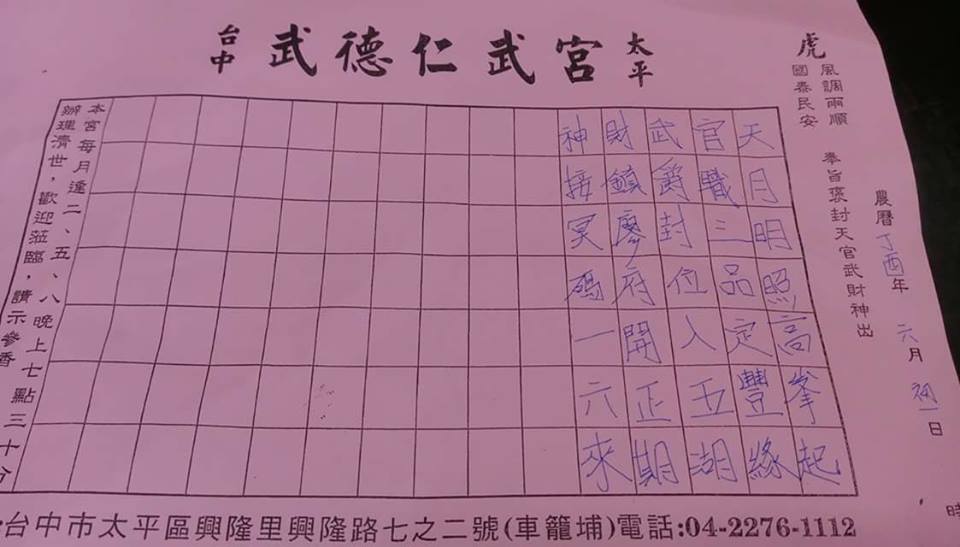 台中 武德仁武宮 太平
農曆丁酉年 六月 初一日 時
虎 風調雨順 國泰民安 奉旨褒封天官武財神出
天月明照高峯起
官職三品定豐緣
武爵封位入五湖
財鎮廖府開正期
神接冥碼一六來
本宮每月逢二、五、八晚上七點三十分
辦理濟世，歡迎蒞臨，請示參香
:台中市太平區興隆里興隆路七之二號(車籠埔)電話:04-2276-1112